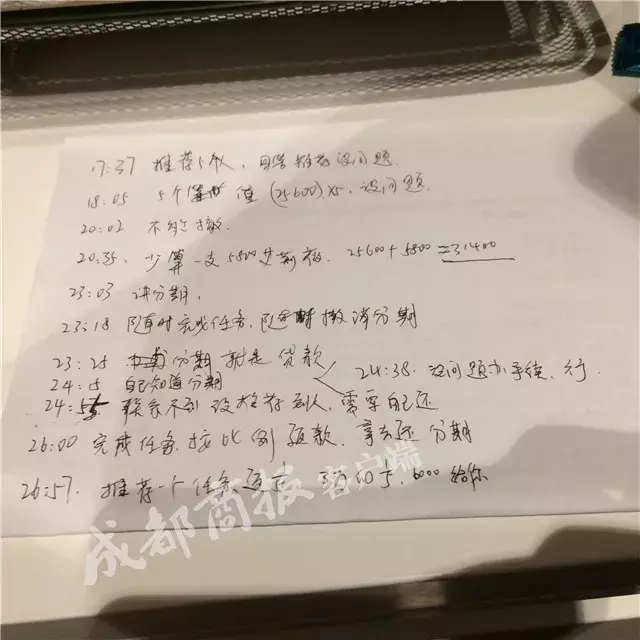 17:37 推荐5个人，自营推荐没问题.
18:05 5个 值 (25600)×5，没问题.
20:02 不能撤.
20:35. 少算一支5800艾莉薇. 25600+5800=31400
23:03 讲分期，
23:18 随时完成任务，随时撤消分期
23:25 分期就是贷款
24:38. 没问题办手续，行.
24:15 自己知道分期
24:55 联系不到没推荐到人，需要自己还
26:00 完成任务，按比例返款，拿去还分期
26:57. 推荐一个任务 6000给你
成都商报客户端